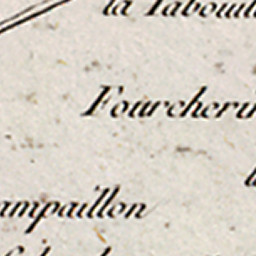 la Tabouil
Fourcheri
ampaillon